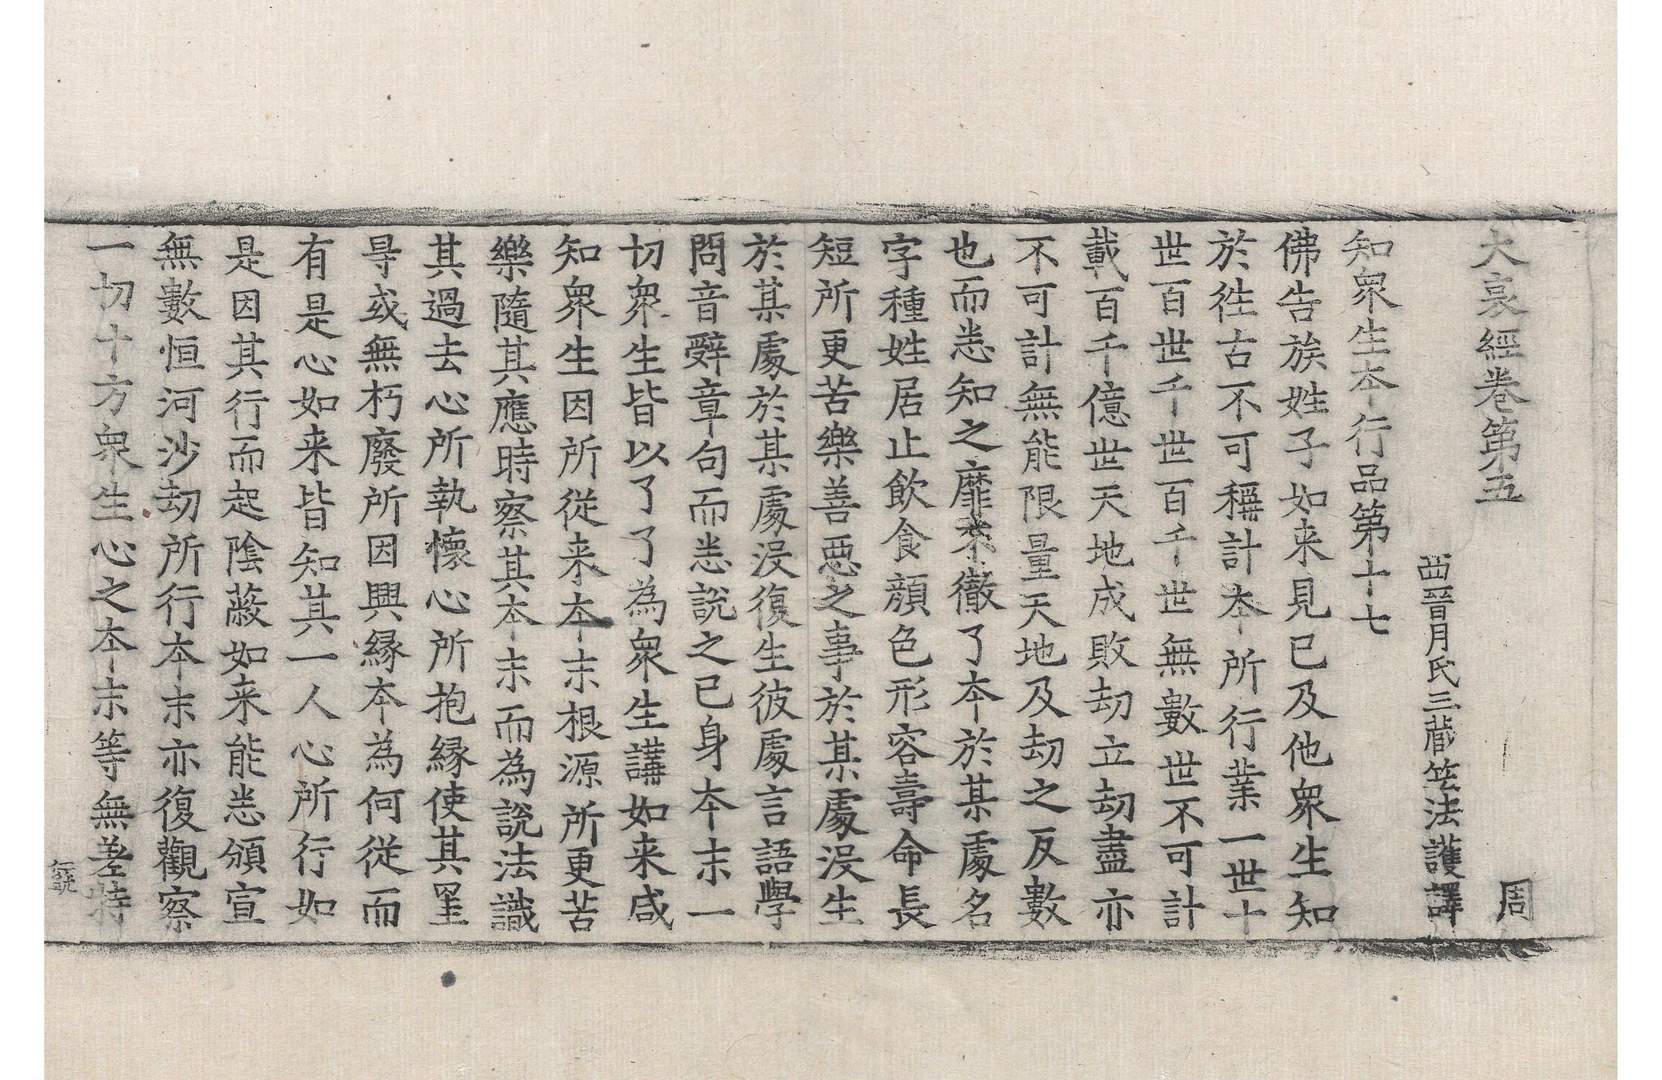 大哀經卷第五　周
西晉月氏三藏竺法護譯
知衆生本行品第十七
佛告族姓子如来見已及他衆生知
於徃古不可稱計本所行業一世十
世百世千世百千世無數世不可計
載百千億世天地成敗劫立劫盡亦
不可計無能限量天地及劫之反數
也而悉知之靡不徹了本於某處名
字種姓居止飲食顔色形容壽命長
短所更苦樂善惡之事於某處没生
於某處於某處没復生彼處言語學
問音辝章句而悉說之已身本末一
切衆生皆以了了為衆生講如来咸
知衆生因所從来本末根源所更苦
樂隨其應時察其本末而為說法識
其過去心所執懷心所抱緣使其罣
㝵或無朽廢所因興緣本為何從而
有是心如来皆知其一人心所行如
是因其行而起陰蔽如来能悉頒宣
無數恒河沙劫所行本末亦復觀察
一切十方衆生心之本末等無差特